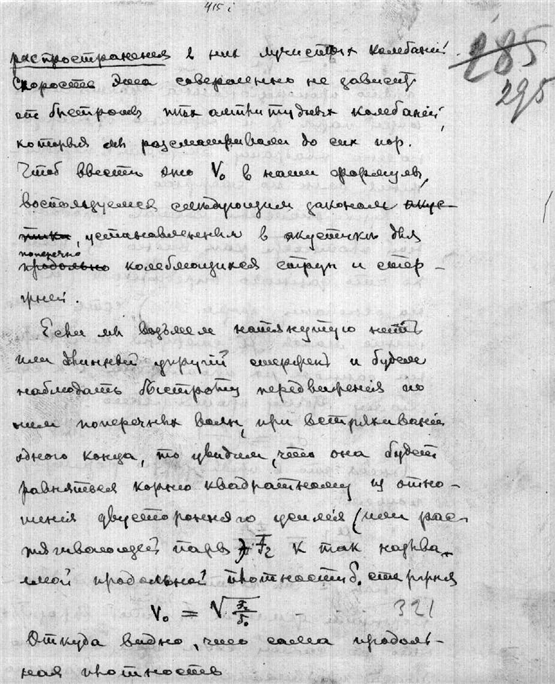 415 i
285
295
распространенія в них лучистых колебаній.
Скорость эта совершенно не зависит
от быстроты тех амплитудных колебаній,
которыя мы разсматривали до сих пор.
Чтоб ввести это V₀ в наши формулы,
воспользуемся следующим законом акус-
тики, установленным в акустике для
поперечно
продольно колеблющихся струн и стер-
жней.
Если мы возьмем натянутую нить
или длинный упругій стержень и будем
наблюдать быстроту передвиженія по
ним поперечных волн, при встряхиваніи
одного конца, то увидим, что она будет
равняться корню квадратному из отно-
шенія двусторонняго усилія (или рас-
тягивающей пары F₂ к так называ-
емой продольной плотности δ₀ стержня
V₀ = √F₂/δ₀ - - - 321
Откуда видно, что сама продоль-
ная плотность